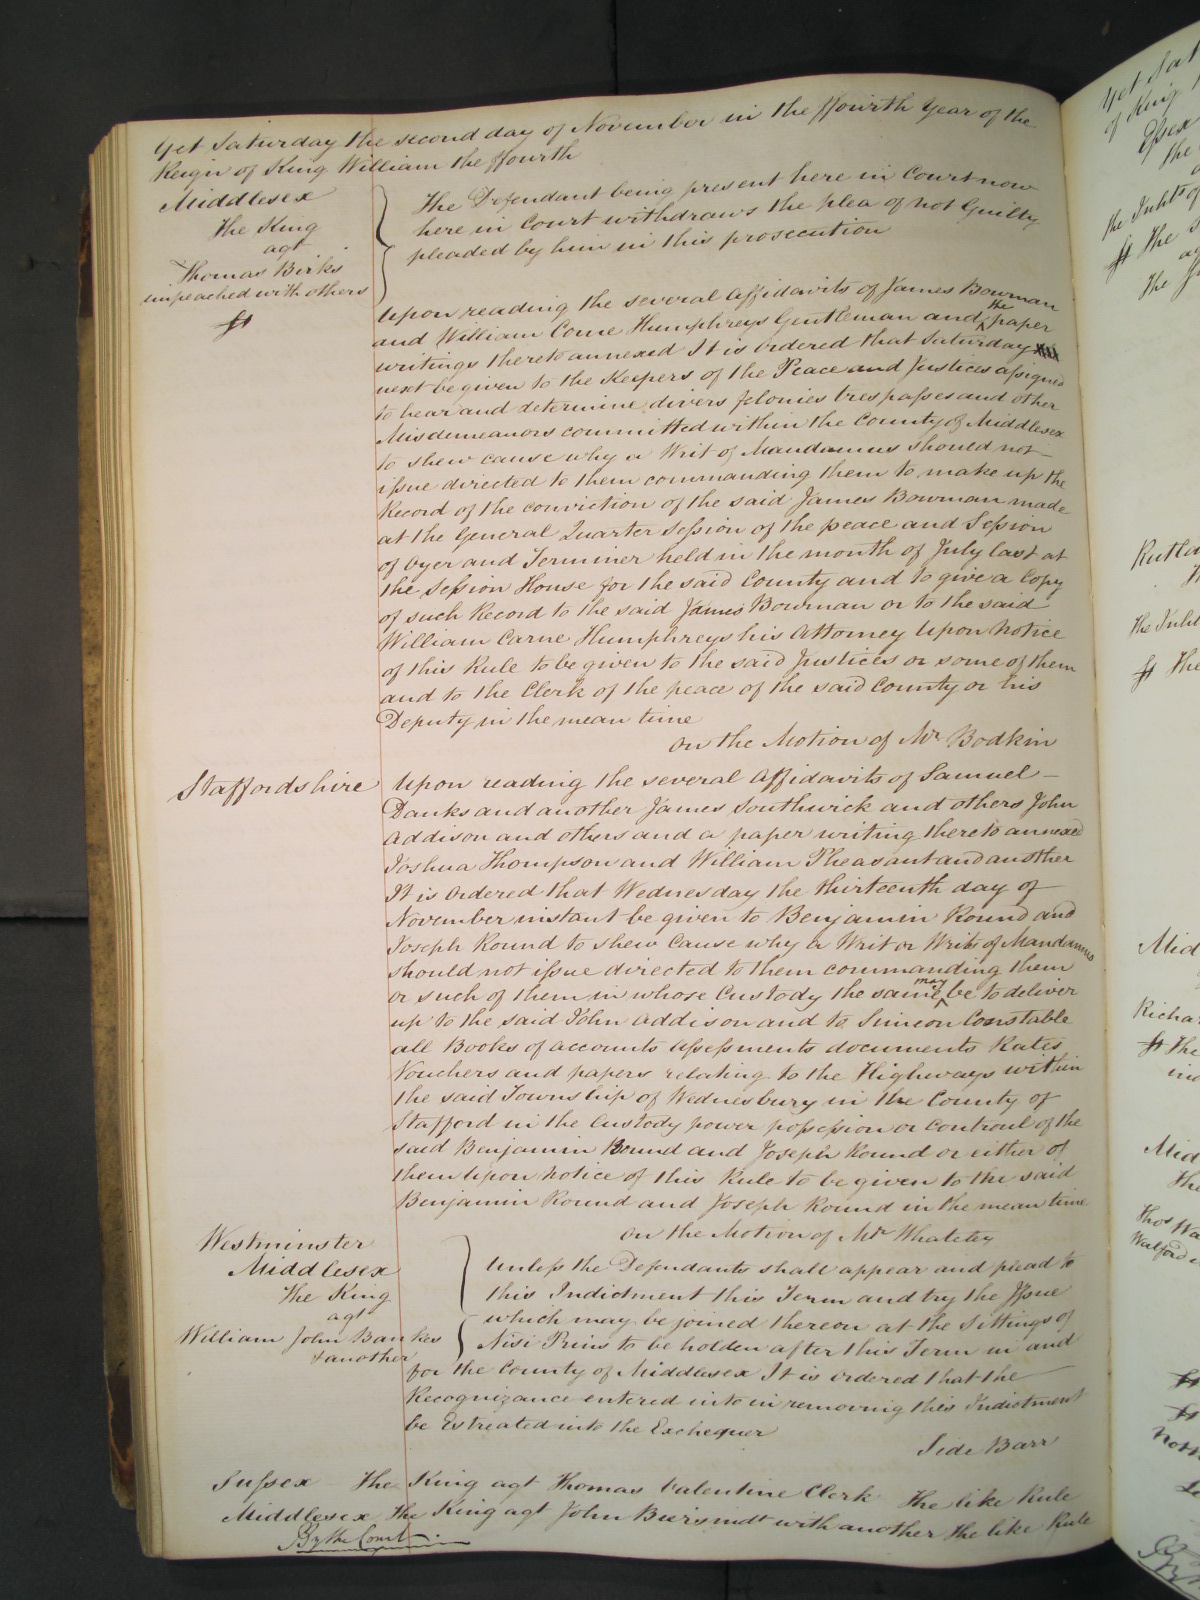 Yet Saturday the second day of November in the ffourth Year of the
Reign of King William the ffourth
Middlesex
The King
agt
Thomas Birks
impeached with others
The Defendant being present here in Court now
here in Court withdraws the plea of not Guilty
pleaded by him in this prosecution
Upon reading the several Affidavits of James Bowman
and William Corne Humphreys Gentleman and the paper
writings thereto annexed It is ordered that Saturday
next be given to the Keepers of the Peace and Justices assigned
to hear and determine divers felonies trespasses and other
Misdemeanors committed within the County of Middlesex
to shew cause why a Writ of Mandamus should not
issue directed to them commanding them to make up the
Record of the conviction of the said James Bowman made
at the General Quarter Session of the peace and Session
of Oyer and Terminer held in the month of July last at
the Session House for the said County and to give a Copy
of such Record to the said James Bowman or to the said
William Carne Humphreys his Attorney Upon Notice
of this Rule to be given to the said Justices or some of them
and to the Clerk of the peace of the said County or his
Deputy in the mean time
On the Motion of Mr Bodkin
Staffordshire
Upon reading the several Affidavits of Samuel
Danks and another James Southwick and others John
Addison and others and a paper writing thereto annexed
Joshua Thompson and William Pheasant and another
It is Ordered that Wednesday the thirteenth day of
November instant be given to Benjamin Round and
Joseph Round to shew cause why a Writ or Writs of Mandamus
should not issue directed to them commanding them
or such of them in whose Custody the same may be to deliver
up to the said John Addison and to Simeon Constable
all Books of accounts Assessments documents Rates
Vouchers and papers relating to the Highways within
the said Township of Wednesbury in the County of
Stafford in the Custody power possession or controul of the
said Benjamin Round and Joseph Round or either of
them Upon Notice of this Rule to be given to the said
Benjamin Round and Joseph Round in the mean time
On the Motion of Mr Whateley
Westminster
Middlesex
The King
agt
William John Bankes
& another
Unless the Defendants shall appear and plead to
this Indictment this Term and try the Issue
which may be joined thereon at the Sittings of
Nisi Prius to be holden after this Term in and
for the County of Middlesex It is ordered that the
Recognizance entered into in removing this Indictment
be Estreated into the Exchequer
Side Barr
Sussex The King agt Thomas Valentine Clerk The like Rule
Middlesex The King agt John with another The like Rule
By the Court